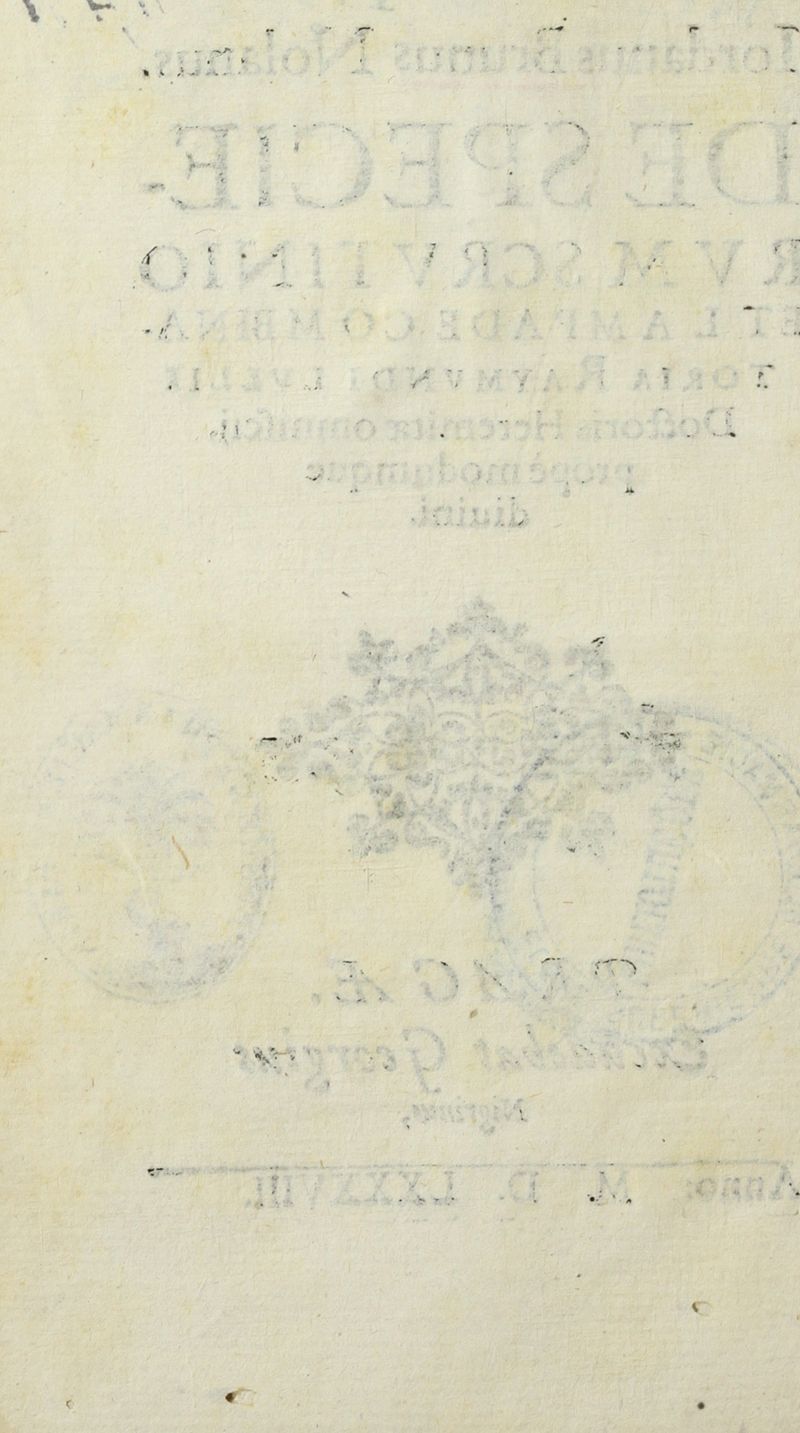 Iordanus Brunus Nolanus
DE SPECIE-
RVM SCRVTINIO
ET LAMPADE COMBINA
TORIA RAYMVNDI LVLLII
Doctoris Heremitæ omniscij,
propèmodumque
diuini.
PRAGÆ.
Excudebat Georgius
Nigrinus,
Anno: M. D. LXXXVIII.